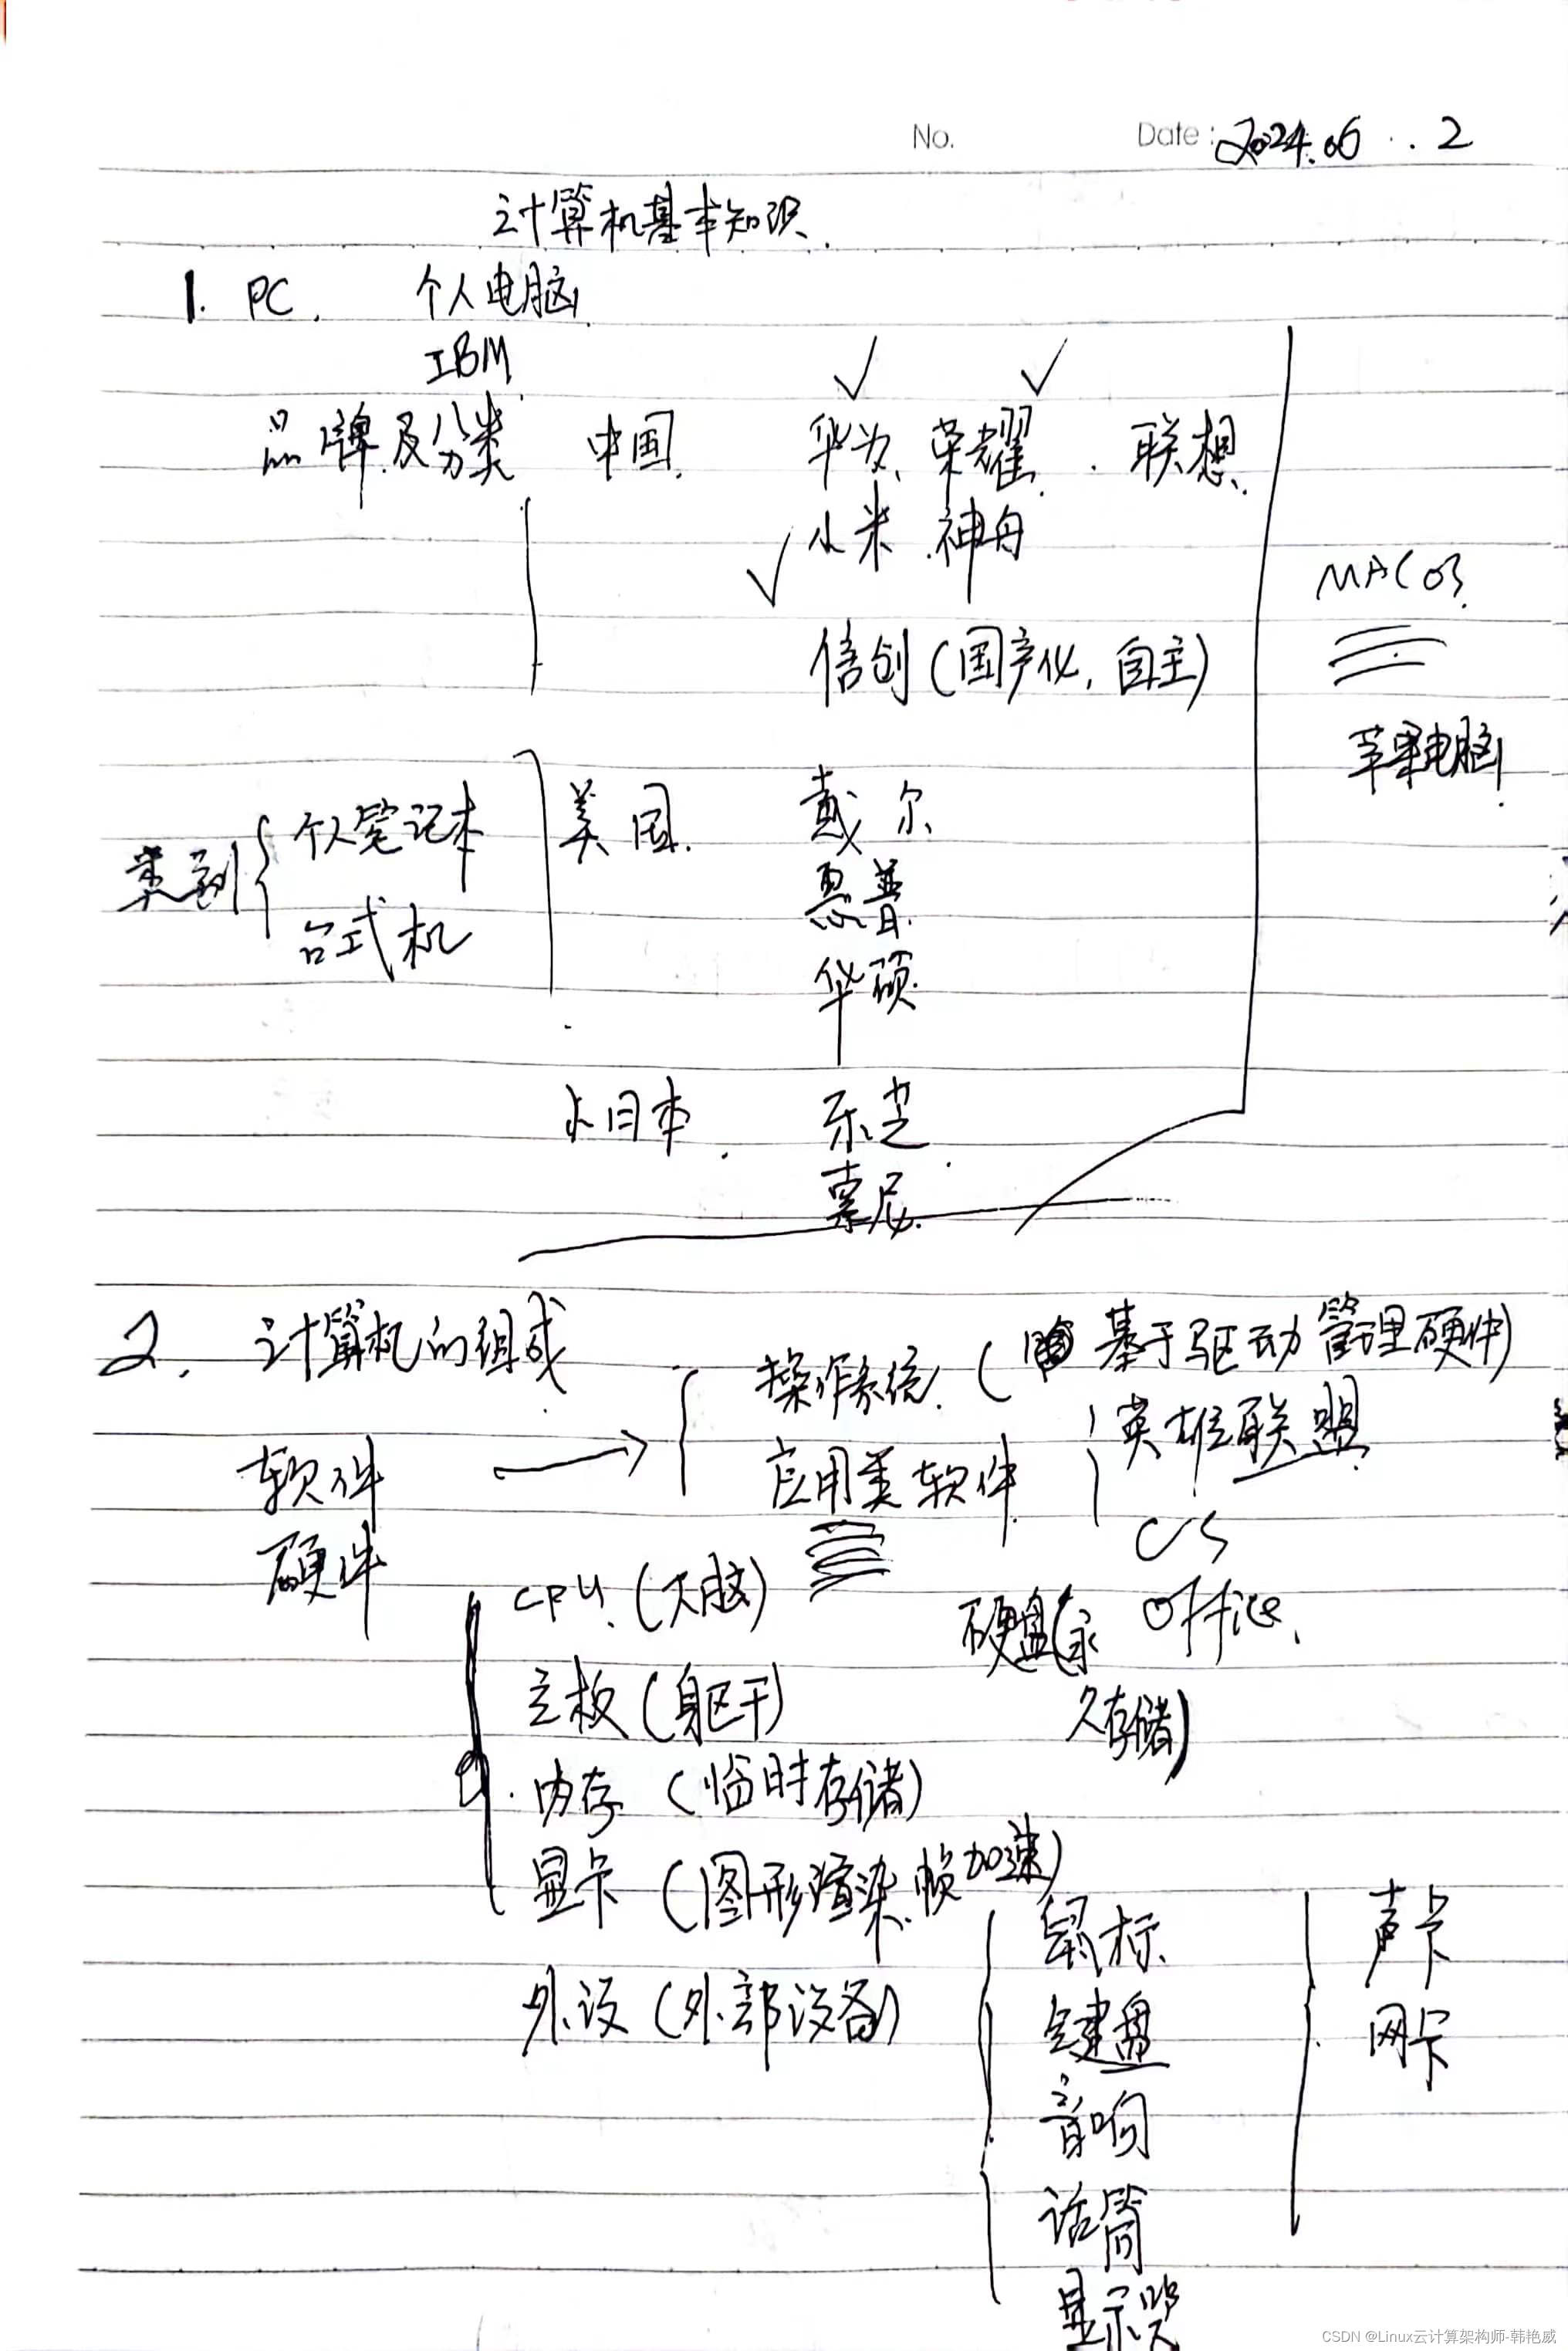 No. Date: 2024.06 . . 2
计算机基本知识.
1. PC. 个人电脑
IBM
品牌及分类 中国. 华为、荣耀. 联想.
小米.神舟
MAC OS.
信创(国产化,自主)
苹果电脑.
类别 个人笔记本 美国. 戴尔
台式机 惠普.
华硕.
小日本. 东芝
索尼.
2. 计算机的组成
操作系统.( 基于驱动管理硬件)
软件 应用类软件. 英雄联盟
硬件 CS
CPU.(大脑) 硬盘(永 office.
主板(身区干) 久存储)
内存(临时存储)
显卡(图形渲染.帧加速)
外设(外部设备) 鼠标 声卡
键盘 网卡
音响
话筒
显示器
CSDN @Linux云计算架构师-韩艳威